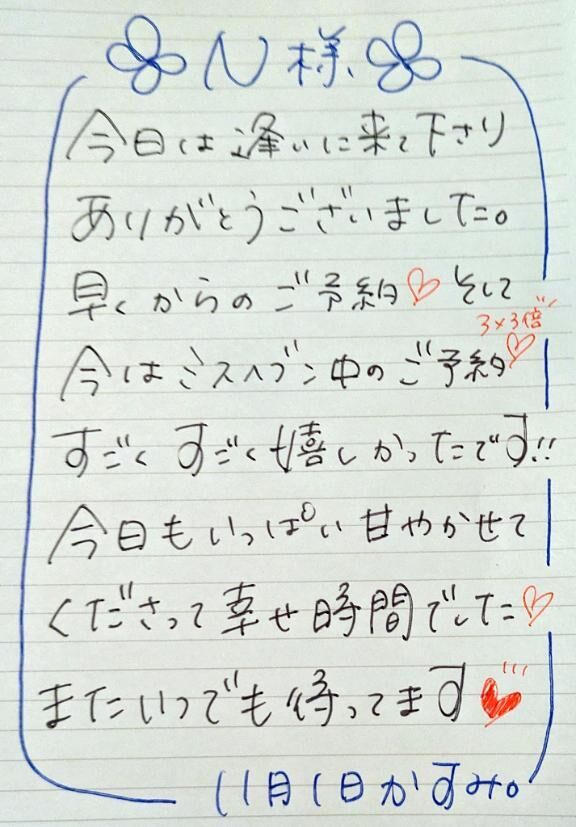 N様
今日は逢いに来て下さり
ありがとうございました。
早くからのご予約♡そして
3×3倍
今はミスヘブン中のご予約♡
すごくすごく嬉しかったです!!
今日もいっぱい甘やかせて
くださって幸せ時間でした♡
またいつでも待ってます♥
11月1日かすみ。